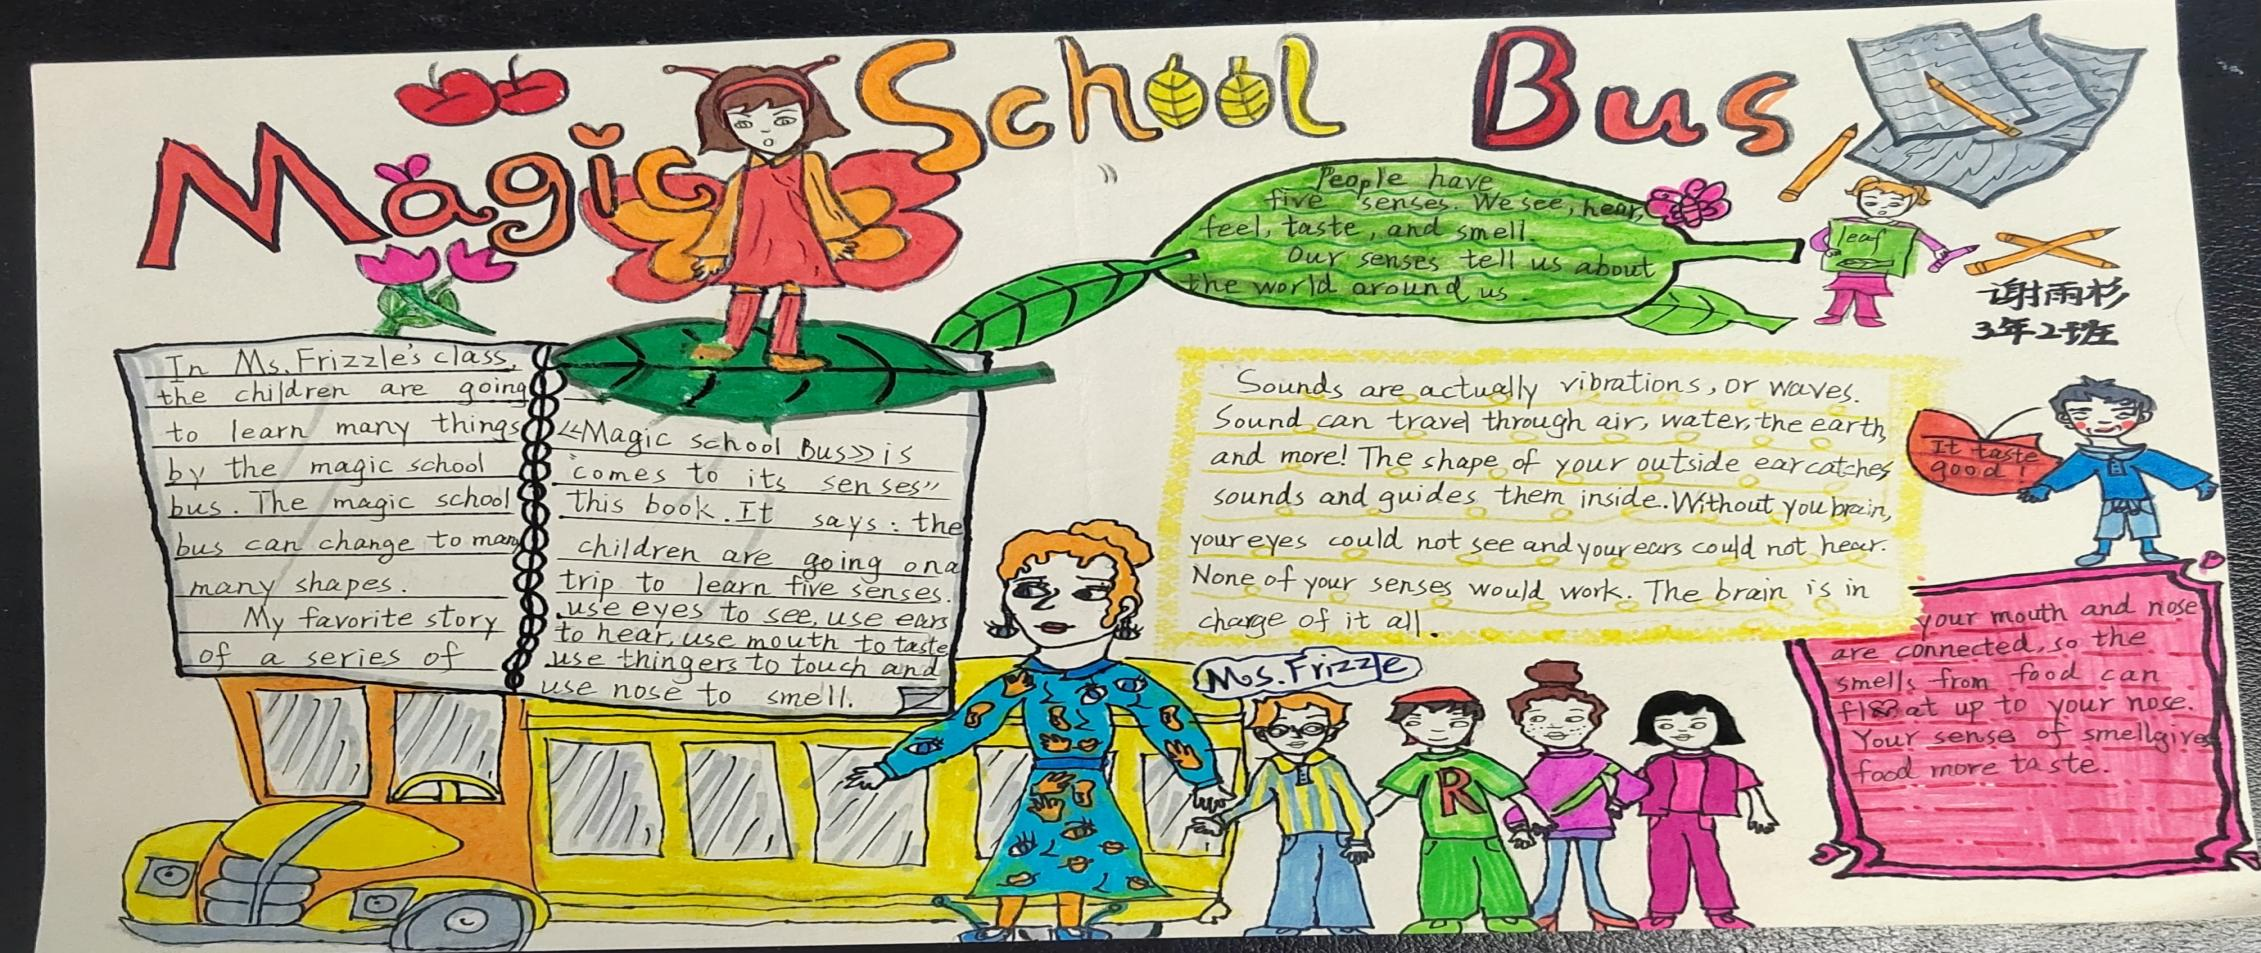 Magic School Bus
People have
five senses. We see, hear,
feel, taste, and smell.
Our senses tell us about
the world around us.
leaf
谢雨杉
3年2班
In Ms. Frizzle's class,
the children are going
to learn many things
by the magic school
bus. The magic school
bus can change to many
many shapes.
My favorite story
of a series of
《Magic school Bus》is
"comes to its senses"
this book. It says: the
children are going on a
trip to learn five senses.
use eyes to see, use ears
to hear, use mouth to taste
use thingers to touch and
use nose to smell.
Sounds are actually vibrations, or waves.
Sound can travel through air, water, the earth,
and more! The shape of your outside ear catches
sounds and guides them inside. Without you brain,
your eyes could not see and your ears could not hear.
None of your senses would work. The brain is in
charge of it all.
It taste
good!
Ms. Frizzle
R
your mouth and nose
are connected, so the
smells from food can
float up to your nose.
Your sense of smell gives
food more taste.